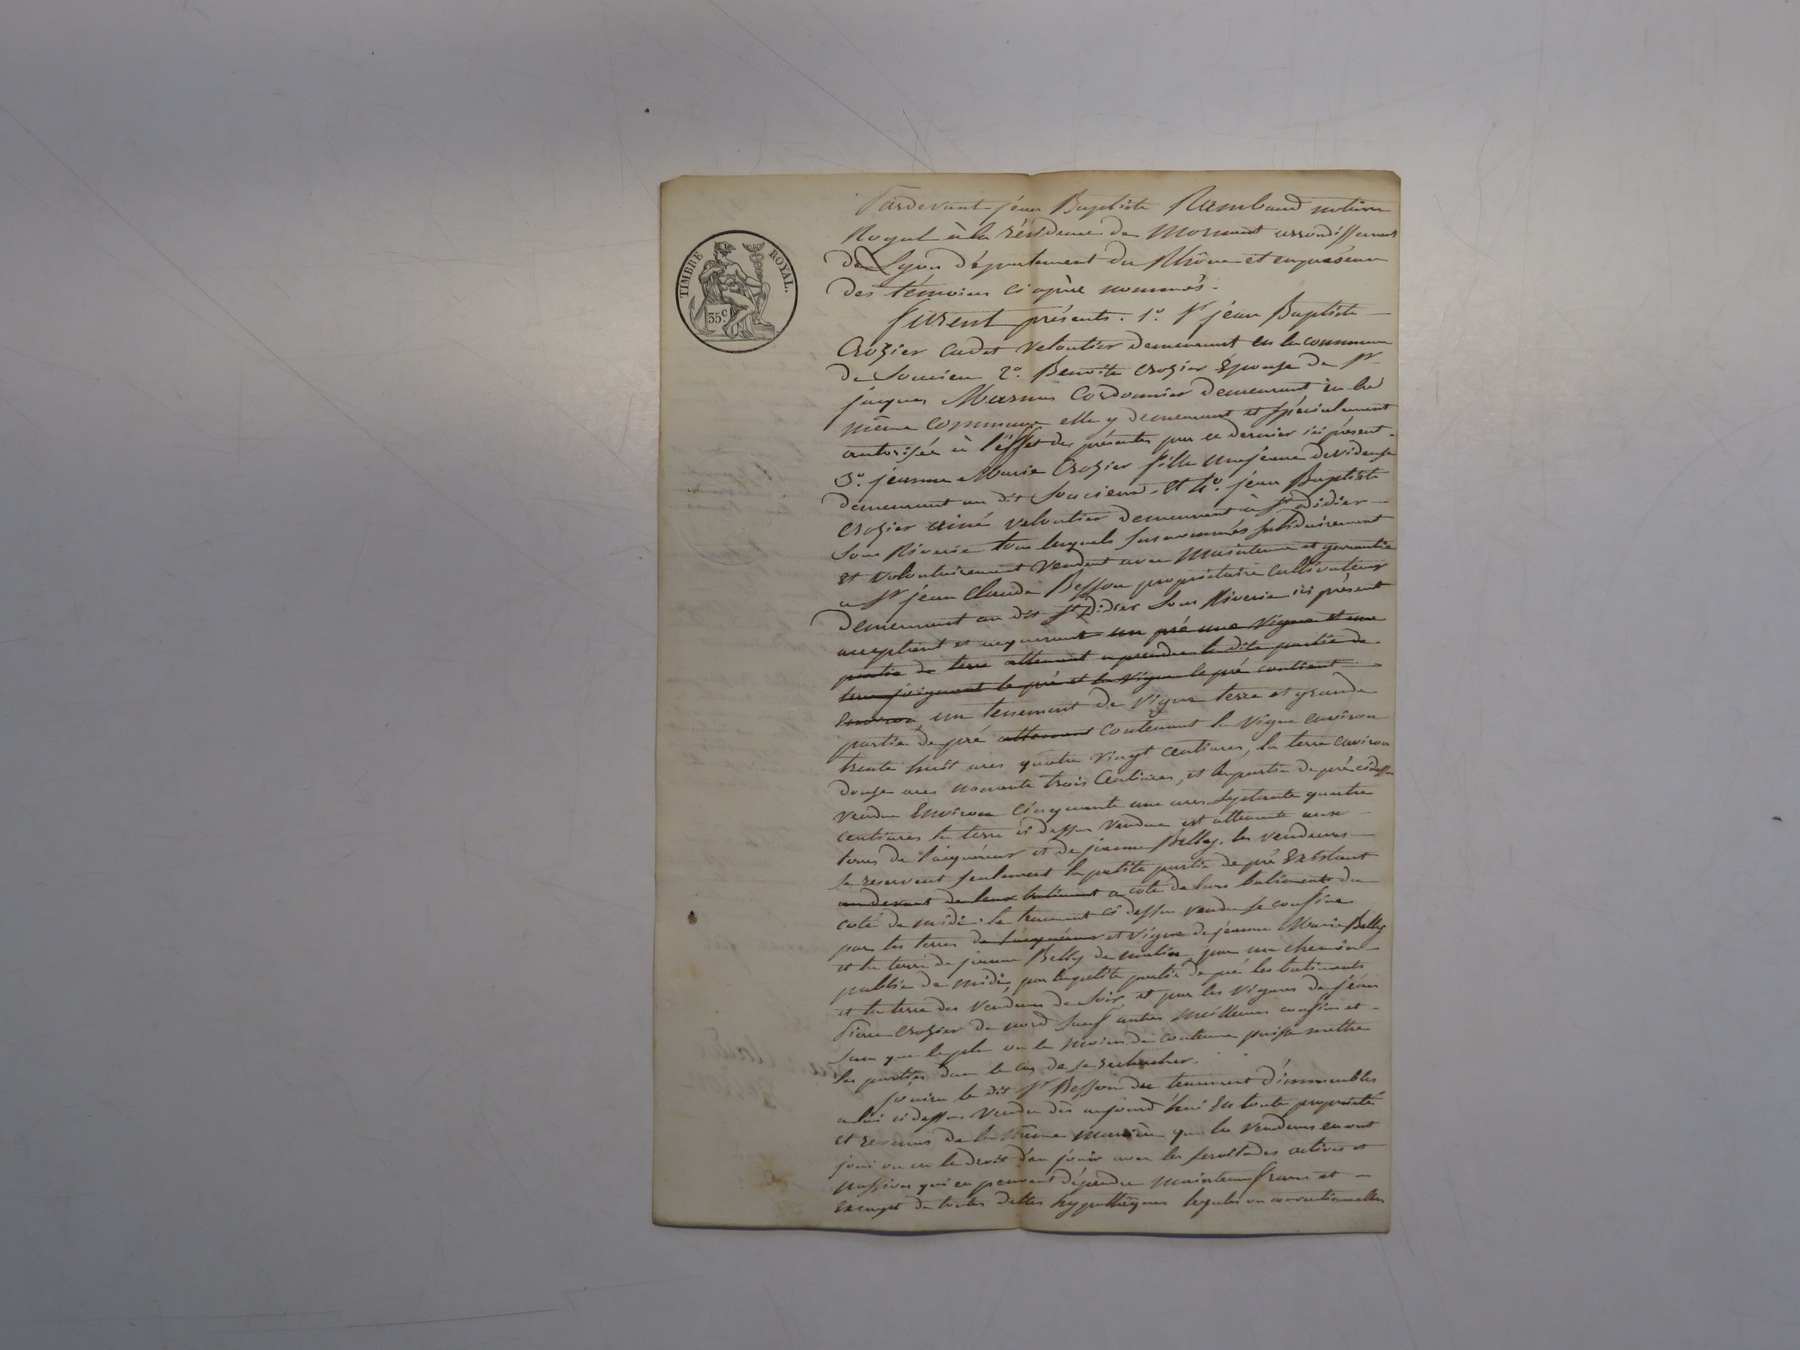 TIMBRE ROYAL.
35c
Pardevant jéan Baptiste Rambaud notaire
Royal à la résidence de Mornant arrondissement
de Lyon département du Rhône et en présence
des témoins ci après nommés.
furent présents. 1º. Sr jéan Baptiste
Crozier cadet veloutier demeurant en la commune
de Soucieu 2º. Benoite Crozier Epouse de Sr
jacques Cordonnier demeurant en la
même Commune elle y demeurant et spécialement
autorisée à l'effet des présentes par ce dernier ici présent.
3º. jeanne Marie Crozier fille majeure devideuse
demeurant au dit Soucieu. et 4º. jéan Baptiste
Crozier ainé veloutier demeurant à St Didier
Sous Riverie tous lesquels susnommés solidairement
et volontairement vendent avec Maintenue et garantie
a Sr jéan Claude Besson propriétaire cultivateur
demeurant au dit St Didier Sous Riverie ici présent
acceptant et acquerant un pré une vigne et une
partie de terre attenant a prendre la dite partie de
terre joignant le pré et la vigne le pré contient
Environ, un tenement de vigne terre et grande
partie de pré attenant contenant la vigne environ
trente huit ares quatre vingt centiares, la terre environ
douze ares nonante trois Centiares, et la partie de pré ci dessus
vendue Environ Cinquante une ares septante quatre
centiares la terre ci dessus vendue est attenante aux
terres de l'acquéreur et de jeanne Belley. les vendeurs
se reservent seulement la petite partie de pré Existant
au devant de leur batiment a coté de leurs batiments du
coté de midi. le tenement ci dessus vendu se confine
par les terres de l'acquéreur et vigne de jéanne Marie Belley
et la terre de jeanne Belley de matin, par un chemin
public de midi, par la petite partie de pré les batiments
et la terre des vendeurs de soir, et par les vignes de jéan
Pierre Crozier de nord sauf autres meilleurs confins et
sans que le plus ou le moins de contenue puisse mettre
les parties dans le cas de se rechercher.
jouira le dit Sr Besson du tenement d'immeubles
a lui ci dessus vendu dès aujourd'hui En toute propriété
et revenus de la même manière que les vendeurs en ont
joui ou eu le droit d'en jouir avec les servitudes actives et
passives qui en peuvent dépendre maintenu franc et
exempt de toutes dettes hypothèques légales ou conventionnelles